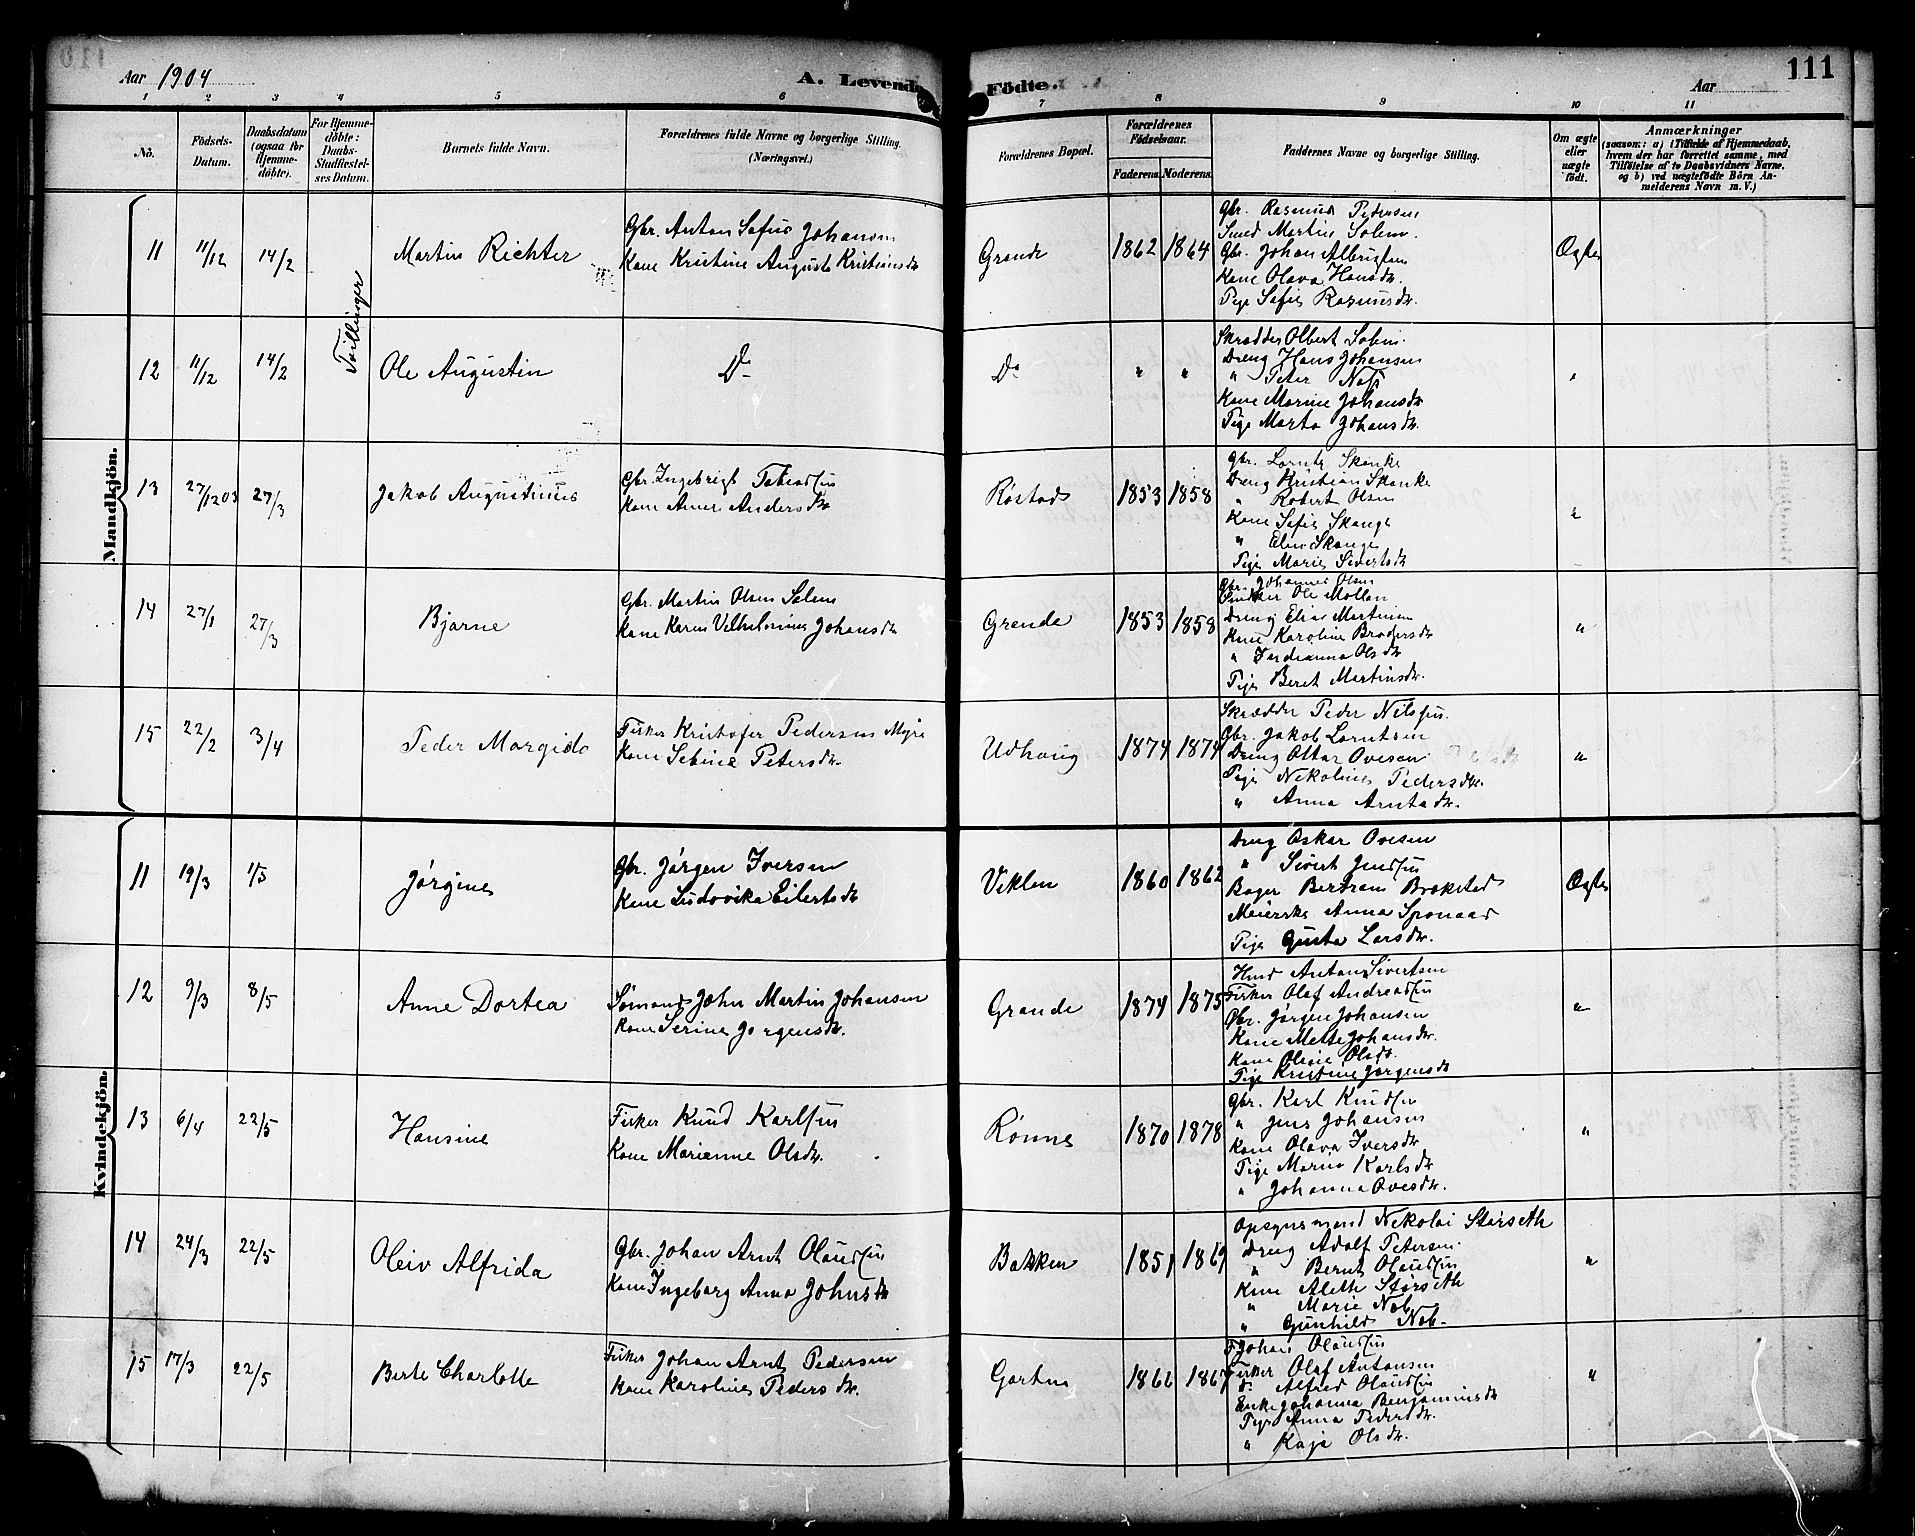 Aar 1904
A. Levende
Födte.
Aar
111
1 2 3 4 5 6 7 8 9 10 11
No.
Födsels-Datum.
Daabsdatum (ogsaa for Hjemme-döbte).
For Hjemme-döbte: Daabs-Stadfæstel-ses Datum.
Barnets fulde Navn.
Forældrenes fulde Navne og borgerlige Stilling. (Næringsvei.)
Forældrenes Bopæl.
Forældrenes Födselsaar.
Faderens. Moderens.
Faddernes Navne og borgerlige Stilling.
Om ægte eller uægte födt.
Anmærkninger
(saasom: a) i Tilfælde af Hjemmedaab, hvem der har forrettet samme, med Tilföielse af to Daabsvidners Navne, og b) ved uægtefödte Börn An-melderens Navn m. V.)
Mandkjön.
11 11/12 14/2 Martin Richter
Tvillinger
Gbr. Anton Sofus Johansen
Kone Kristine Augusta Kristiansdr
Grande 1862 1864
Gbr. Rasmus Pedersen
Smed Martin Solem.
Gbr. Johan Albrigtsen
Kone Olava Hansdr.
Pige Sofie Rasmusdr.
Ægte
12 11/12 14/2 Ole Augustin
Do
Do " "
Skrædder Olbert Solem.
Dreng Hans Johansen
" Peter Næss
Kone Marine Johansdr
Pige Marta Johansdr.
"
13 27/12 03 27/3 Jakob Augustinus
Gbr. Ingebrigt Tobiassen
Kone Anne Andersdr
Røstad 1853 1858
Gbr. Lornts Skanke
Dreng Kristian Skanke
" Robert Olsen
Kone Sofie Skange
" Elen Skange
Pige Marie Sivertsdr
"
14 27/1 27/3 Bjarne
Gbr. Martin Olsen Solem
Kone Karen Vilhelmine Johansdr
Grande 1853 1858
Gbr. Johannes Olsen
Ole Mollan
Dreng Elias Martinsen
Kone Karoline Brodersdr
" Olsdr
Pige Beret Martinsdr.
"
15 22/2 3/4 Peder Margido
Fisker Kristofer Pedersen Myra
Kone Sebine Petersdr.
Udhaug 1874 1874
Skrædder Peder Nilssen.
Gbr. Jakob Lorntsen
Dreng Ottar Ovesen
Pige Nikoline Pedersdr.
" Anna Arntsdr.
"
Kvindekjön.
11 19/3 1/5 Jørgine
Gbr. Jørgen Iversen
Kone Ludovika Eilertsdr
Viklem 1860 1862
Dreng Oskar Ovesen
" Sivert Jenssen
Bager Bertram Brækstad
Meierske Anna Sponaas
Pige Gusta Larsdr.
Ægte
12 9/3 8/5 Anne Dortea
Sømand John Martin Johansen
Kone Serine Jørgensdr.
Grande 1874 1875
Hmd Anton Sivertsen
Fisker Olaf Andreassen
Gbr. Jørgen Johansen
Kone Mette Johansdr.
Kone Oline Olsdr.
Pige Kristine Jørgensdr
"
13 6/4 22/5 Hansine
Fisker Knud Karlsen
Kone Marianne Olsdr.
Rønne 1870 1878
Gbr. Karl Knudsen
" Jens Johansen
Kone Olava Iversdr
Pige Marna Karlsdr
" Johanna Ovesdr.
"
14 24/3 22/5 Oleiv Alfrida
Gbr. Johan Arnt Olaussen
Kone Ingeborg Anna Johnsdr
Bakken 1851 1869
Opsynsmand Nikolai Størseth
Dreng Adolf Petersen.
" Bernt Olaussen
Kone Aleth Størseth
" Marie Næb
" Gunhild Næb
"
15 17/3 22/5 Berte Charlotte
Fisker Johan Arnt Pedersen
Kone Karoline Pedersdr.
Garten 1866 1867
Johan Olaussen
Fisker Olaf Antonsen
do Alfred Olaussen
Enke Johanna Benjaminsdr
Pige Anna Pedersdr.
" Kaja Olsdr.
"